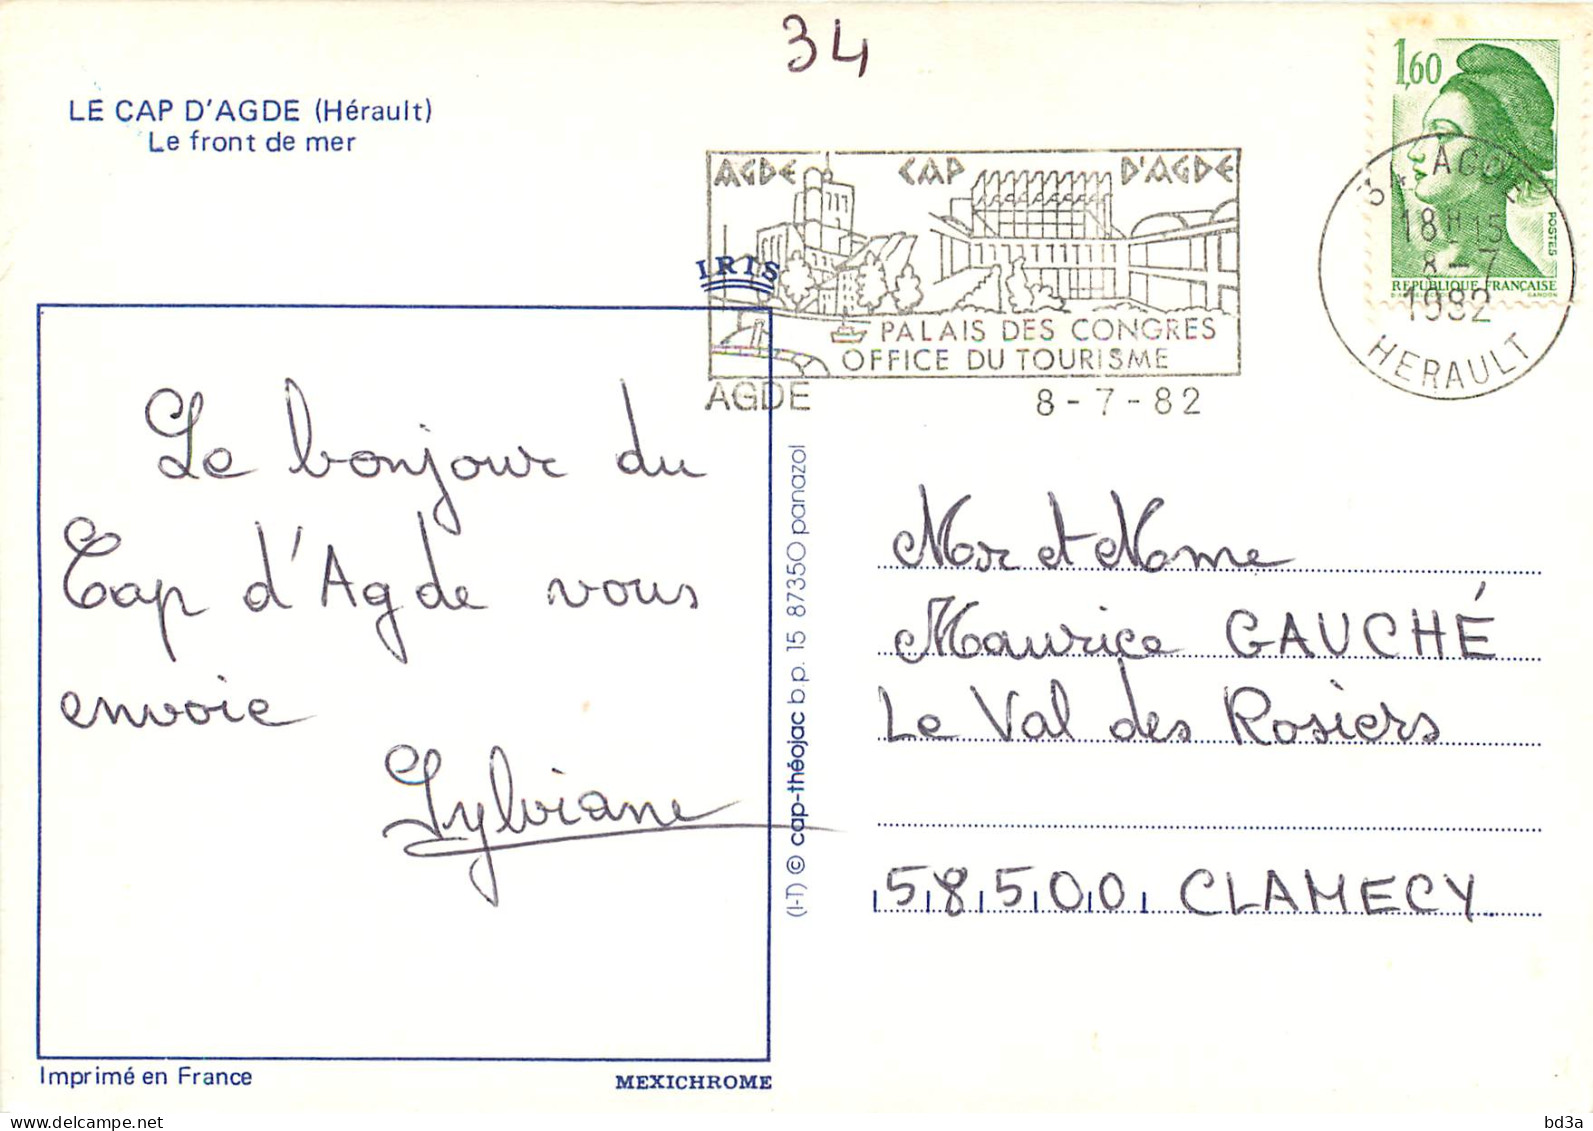 34
LE CAP D'AGDE (Hérault)
Le front de mer
1,60
POSTES
REPUBLIQUE FRANÇAISE
GANDON
34 AGDE
18H15
8-7
1982
HERAULT
AGDE CAP D'AGDE
PALAIS DES CONGRES
OFFICE DU TOURISME
AGDE 8-7-82
IRIS
Le bonjour du
Cap d'Agde vous
envoie
Sylviane
(I-T) © cap-théojac b.p. 15 87350 panazol
Mor et Mome
Maurice GAUCHÉ
Le Val des Rosiers
58500 CLAMECY
Imprimé en France
MEXICHROME
bd3a